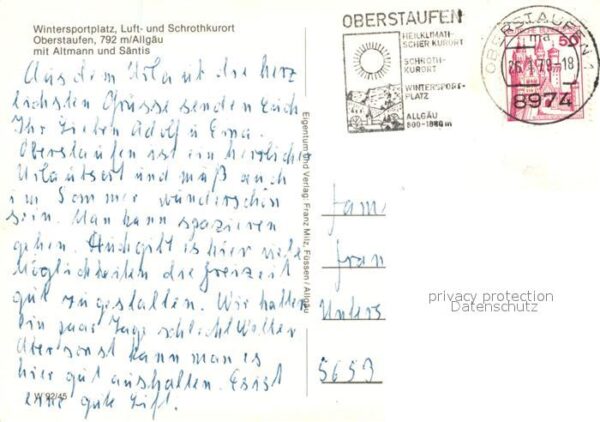 Wintersportplatz, Luft- und Schrothkurort
Oberstaufen, 792 m/Allgäu
mit Altmann und Säntis
Aus dem Urlaub die herz
lichsten Grüsse senden Euch
Ihr Lieben Adolf u Erna.
Oberstaufen ist ein herrlicher
Urlaubsort und muß auch
im Sommer wunderschön
sein. Man kann spazieren
gehen. Auch gibt es hier viele
Möglichkeiten die Freizeit
gut zu gestalten. Wir hatten
ein paar Tage schlecht Wetter
Aber sonst kann man es
hier gut aushalten. Es ist
eine gute Luft.
W 92/45
Eigentum und Verlag: Franz Milz, Füssen/Allgäu
OBERSTAUFEN
HEILKLIMATI-
SCHER KURORT
SCHROTH-
KURORT
WINTERSPORT-
PLATZ
ALLGÄU
800-1880 m
OBERSTAUFEN 1
ma
79-18
8974
50
Fam
Fran
Unters
5653
privacy protection
Datenschutz